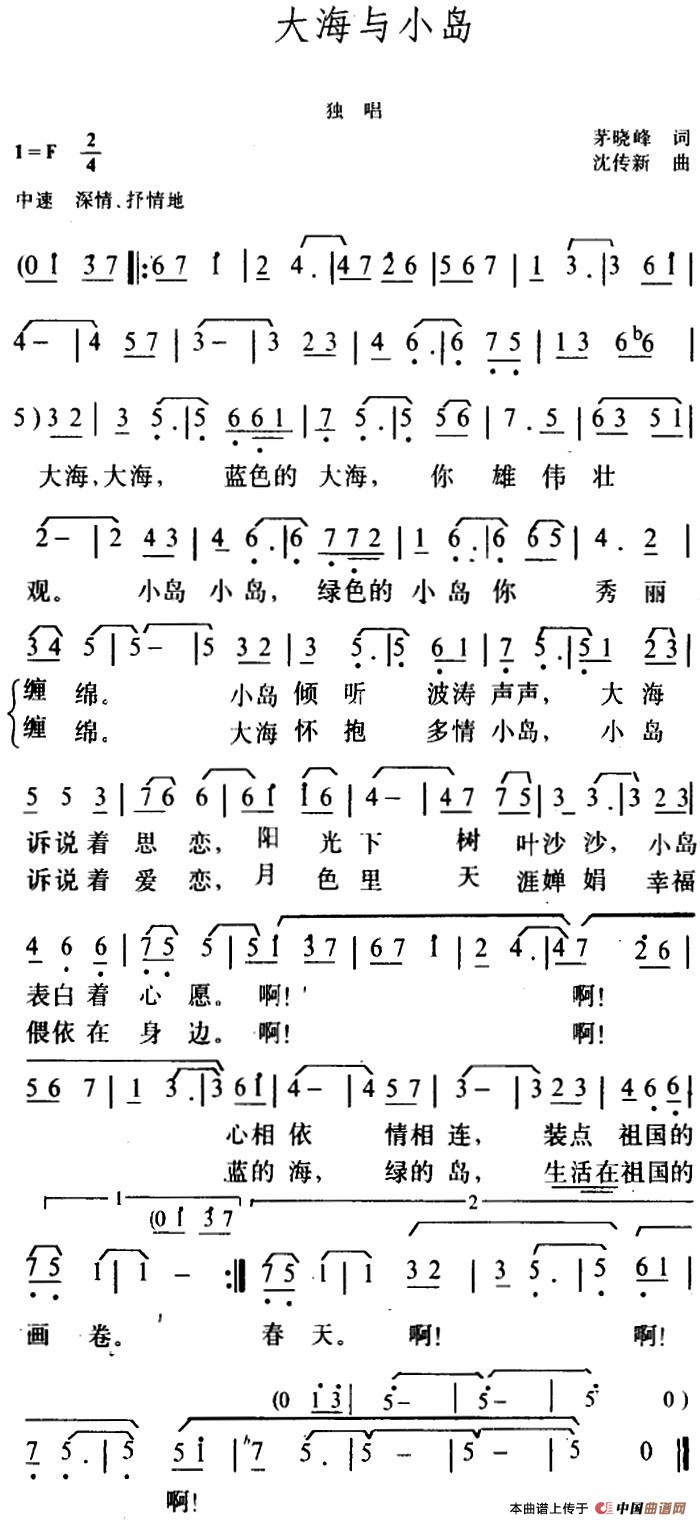 大海与小岛
独 唱
1=F 2/4
茅晓峰 词
沈传新 曲
中速 深情、抒情地
(0 1 3 7 ‖: 6 7 1 | 2 4. | 4 7 2 6 | 5 6 7 | 1 3. | 3 6 1 |
4 - | 4 5 7 | 3 - | 3 2 3 | 4 6. | 6 7 5 | 1 3 6 ♭6 |
5 ) 3 2 | 3 5. | 5 6 6 1 | 7 5. | 5 5 6 | 7. 5 | 6 3 5 1 |
大海,大海, 蓝色的 大海, 你 雄 伟 壮
2 - | 2 4 3 | 4 6. | 6 7 7 2 | 1 6. | 6 6 5 | 4. 2 |
观。 小岛 小岛, 绿色的 小岛你 秀 丽
3 4 5 | 5 - | 5 3 2 | 3 5. | 5 6 1 | 7 5. | 5 2 3 |
缠 绵。 小岛 倾 听 波涛 声声, 大 海
缠 绵。 大海 怀 抱 多情 小岛, 小 岛
5 5 3 | 7 6 6 | 6 1 1 6 | 4 - | 4 7 7 5 | 3 3. | 3 2 3 |
诉说着 思 恋, 阳 光 下 树 叶沙 沙, 小岛
诉说着 爱 恋, 月 色 里 天 涯婵 娟 幸福
4 6 6 | 7 5 5 | 5 1 3 7 | 6 7 1 | 2 4. | 4 7 2 6 |
表白着 心 愿。 啊! 啊!
偎依在 身 边。 啊! 啊!
5 6 7 | 1 3. | 3 6 1 | 4 - | 4 5 7 | 3 - | 3 2 3 | 4 6 6 |
心相 依 情相 连, 装点 祖国的
蓝的 海, 绿的 岛, 生活在祖国的
1 2
(0 1 3 7
7 5 1 | 1 - :‖ 7 5 1 | 1 3 2 | 3 5. | 5 6 1 |
画 卷。 春 天。 啊! 啊!
(0 1 3 | 5 - | 5 - | 5 0 )
7 5. | 5 5 1 | 7 5. | 5 - | 5 - | 5 0 ‖
啊!
本曲谱上传于 中国曲谱网